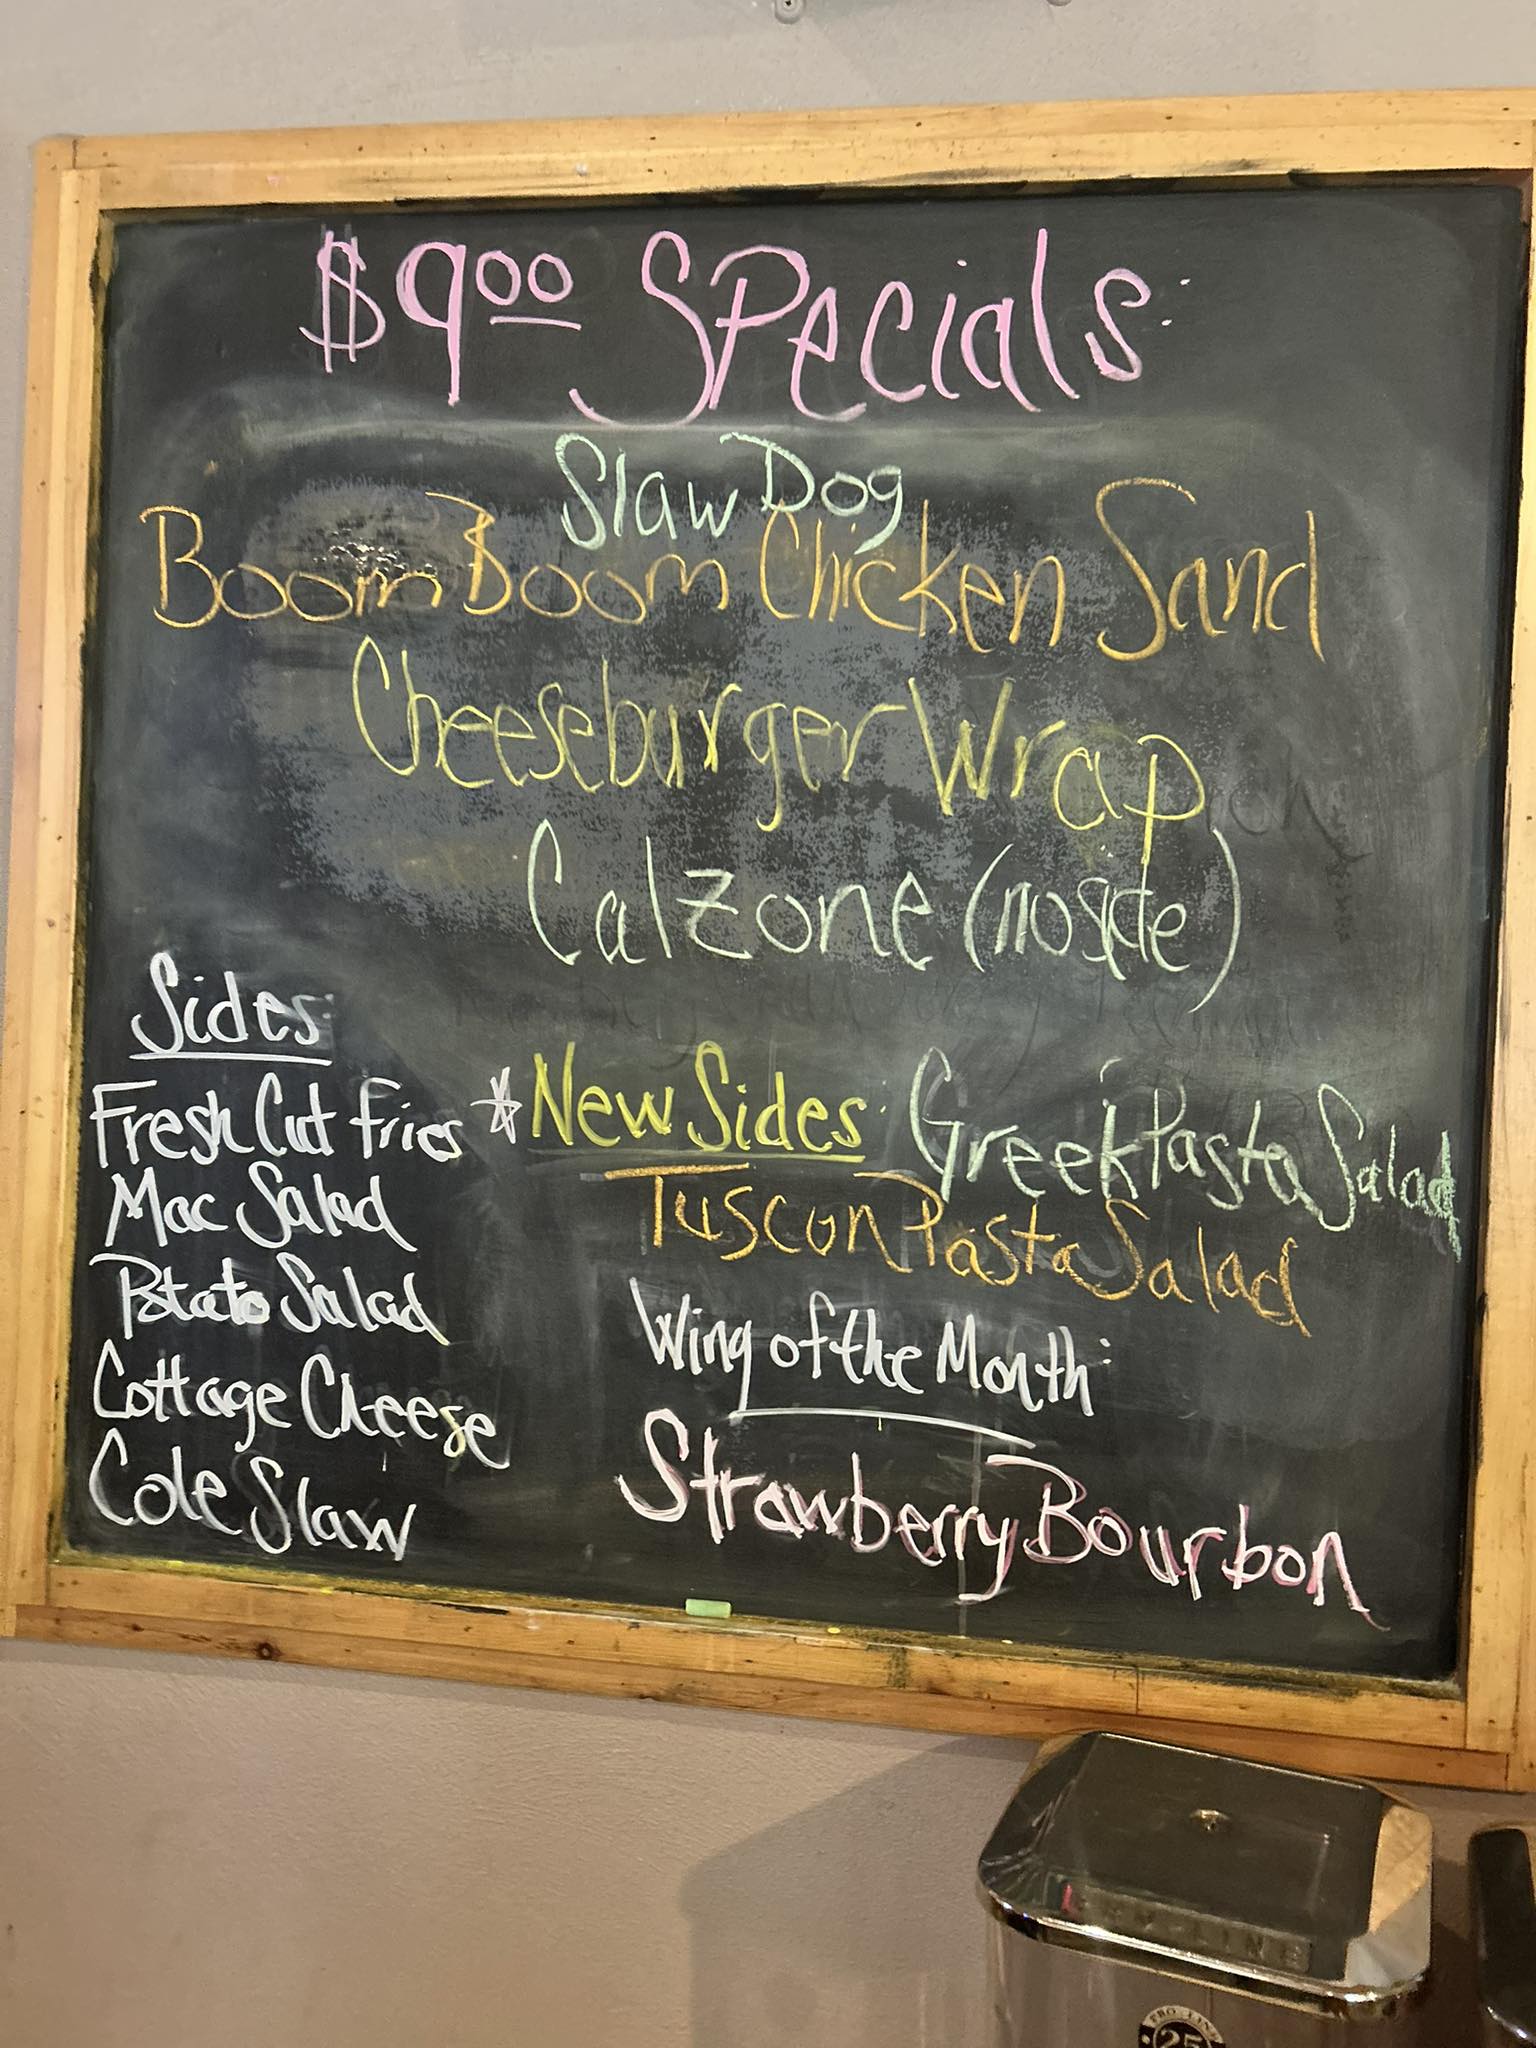 $9.00 Specials:
Slaw Dog
Boom Boom Chicken Sand
Cheeseburger Wrap
Calzone (no side)
Sides:
Fresh Cut Fries
Mac Salad
Potato Salad
Cottage Cheese
Cole Slaw
*New Sides: Greek Pasta Salad
Tuscon Pasta Salad
Wing of the Month:
Strawberry Bourbon
PRO-LINE
PRO-LINE
25